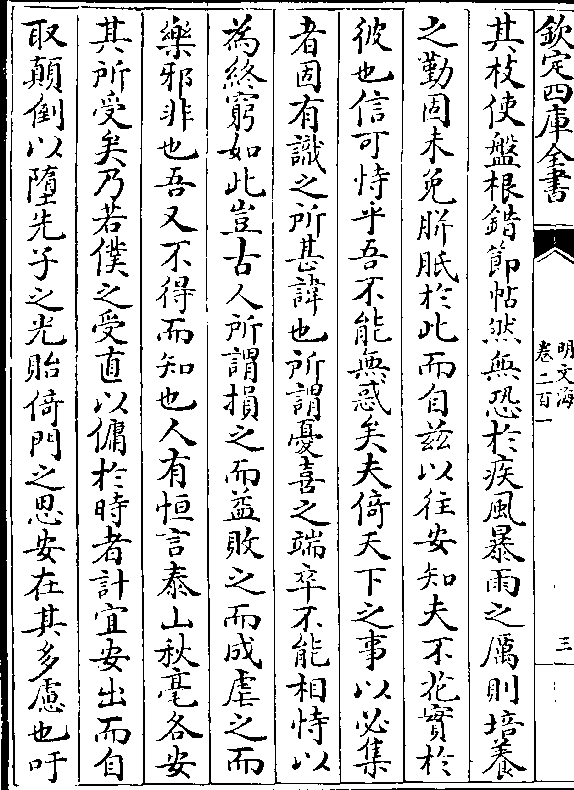 欽定四庫全書
明文海
卷二百一
三
其枝使盤根錯節帖然無恐於疾風暴雨之厲則培養
之勤固未免胼胝於此而自茲以往安知夫不花實於
彼也信可恃乎吾不能無惑矣夫倚天下之事以必集
者固有識之所甚諱也所謂憂喜之端卒不能相恃以
為終窮如此豈古人所謂損之而益敗之而成虐之而
樂邪非也吾又不得而知也人有恒言泰山秋毫各安
其所受矣乃若僕之受直以傭於時者計宜安出而自
取顛倒以墮先子之光貽倚門之思安在其多慮也吁